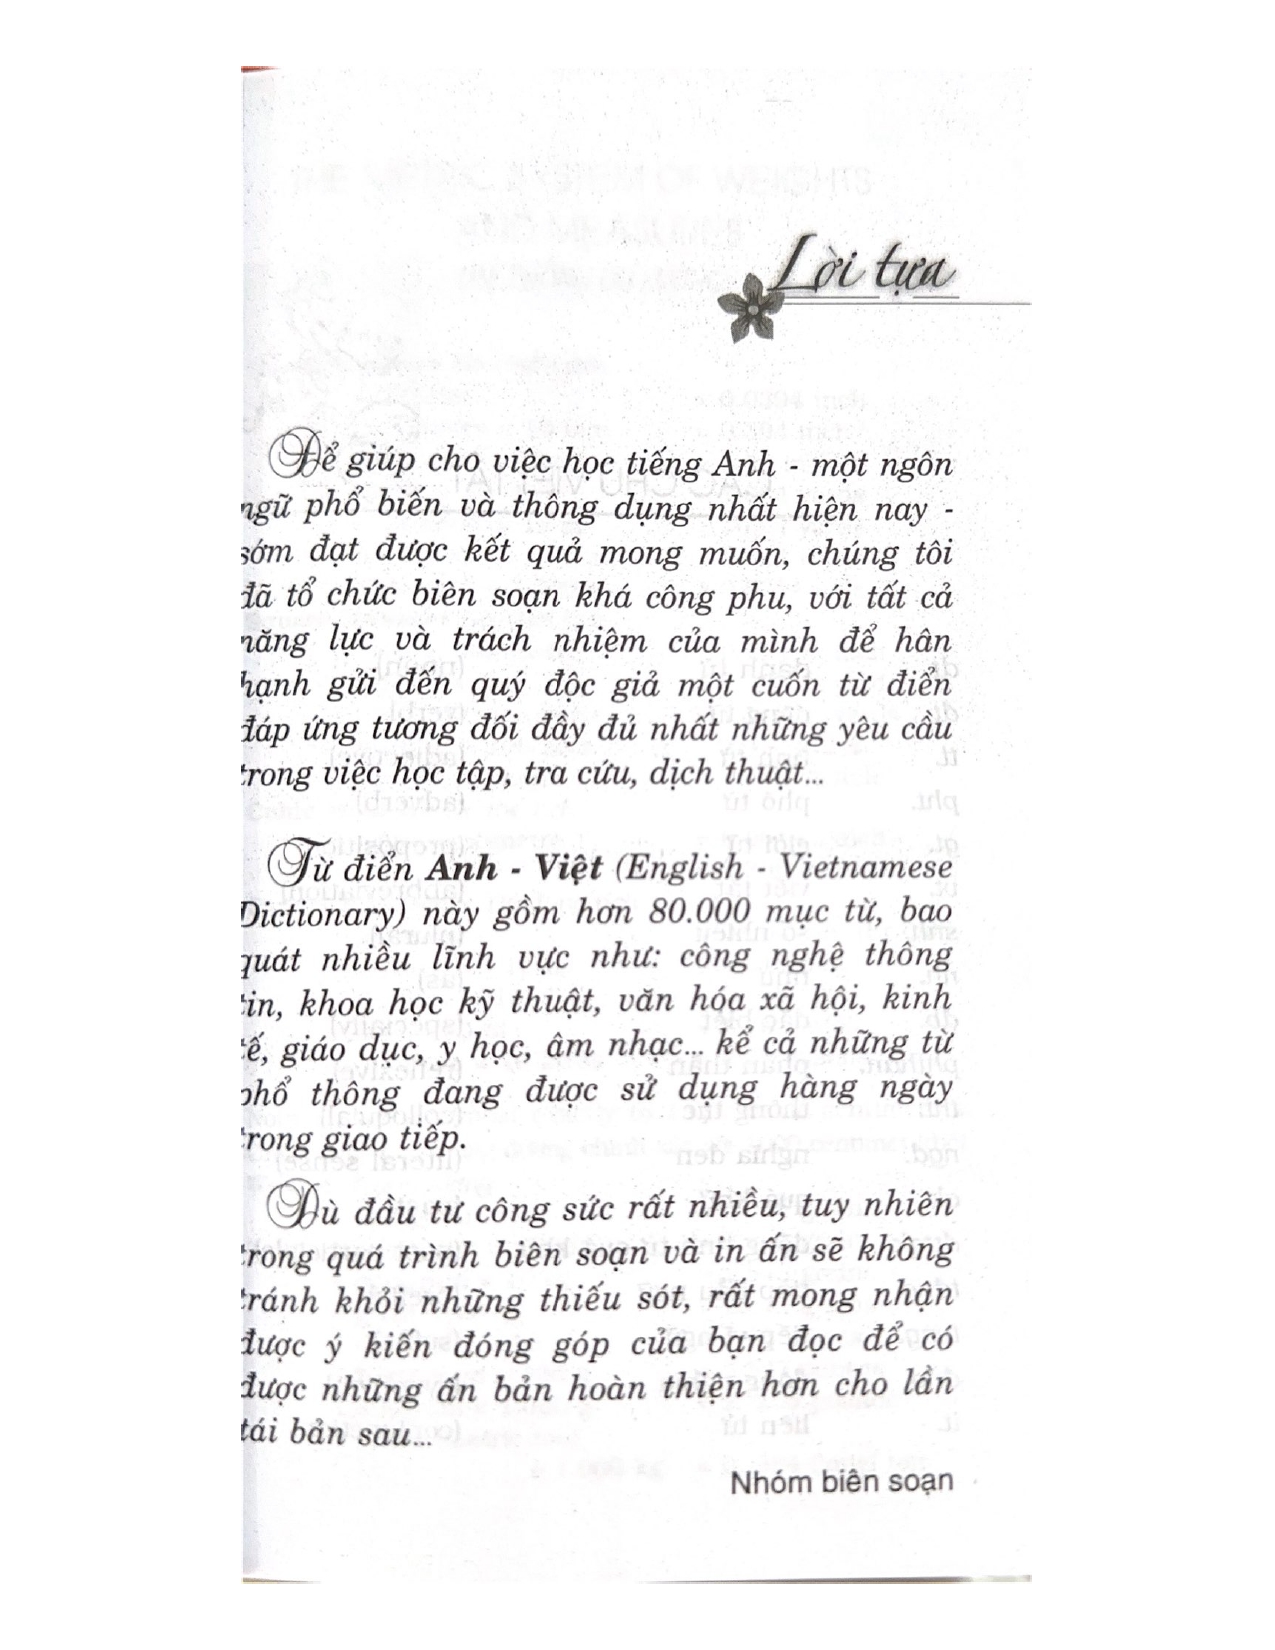 Lời tựa
Để giúp cho việc học tiếng Anh - một ngôn
ngữ phổ biến và thông dụng nhất hiện nay -
sớm đạt được kết quả mong muốn, chúng tôi
đã tổ chức biên soạn khá công phu, với tất cả
năng lực và trách nhiệm của mình để hân
hạnh gửi đến quý độc giả một cuốn từ điển
đáp ứng tương đối đầy đủ nhất những yêu cầu
trong việc học tập, tra cứu, dịch thuật...
Từ điển Anh - Việt (English - Vietnamese
Dictionary) này gồm hơn 80.000 mục từ, bao
quát nhiều lĩnh vực như: công nghệ thông
tin, khoa học kỹ thuật, văn hóa xã hội, kinh
tế, giáo dục, y học, âm nhạc... kể cả những từ
phổ thông đang được sử dụng hàng ngày
trong giao tiếp.
Dù đầu tư công sức rất nhiều, tuy nhiên
trong quá trình biên soạn và in ấn sẽ không
tránh khỏi những thiếu sót, rất mong nhận
được ý kiến đóng góp của bạn đọc để có
được những ấn bản hoàn thiện hơn cho lần
tái bản sau...
Nhóm biên soạn